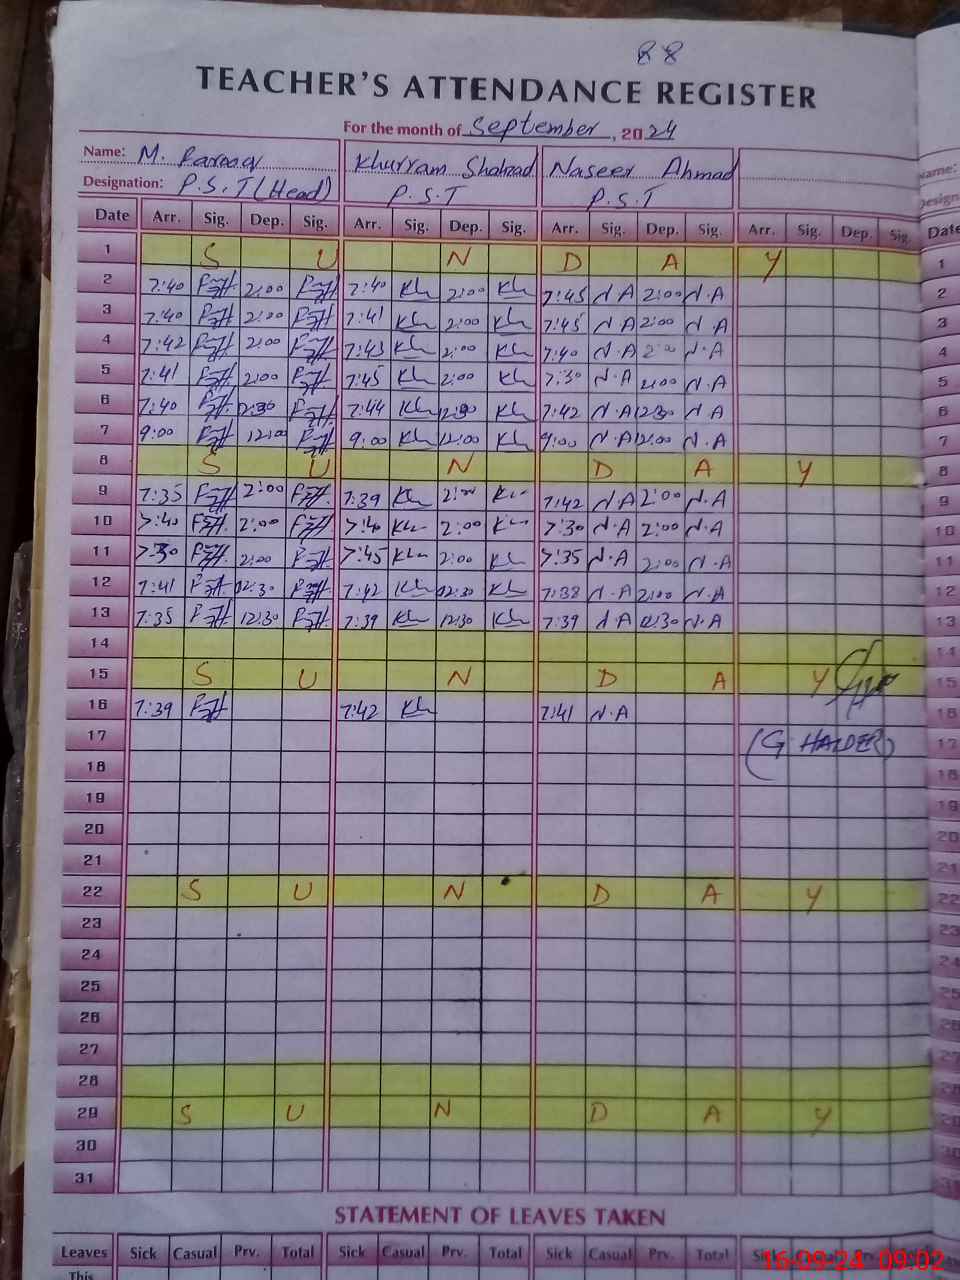 88
TEACHER'S ATTENDANCE REGISTER
For the month of September, 2024
Name: M. Khurram Shahzad Naseer Ahmad Name:
Designation: P.S.T (Head) P.S.T P.S.T
Date Arr. Sig. Dep. Sig. Arr. Sig. Dep. Sig. Arr. Sig. Dep. Sig. Arr. Sig. Dep. Sig. Date
1 S U N D A Y 1
2 7:40 2:00 7:40 Kh 2:00 Kh 7:45 N A 2:00 N.A 2
3 7:40 2:00 7:41 Kh 2:00 Kh 7:45 N A 2:00 N.A 3
4 7:42 2:00 7:43 Kh 2:00 Kh 7:40 N.A 2:00 N.A 4
5 7:41 2:00 7:45 Kh 2:00 Kh 7:30 N.A 2:00 N.A 5
6 7:40 12:30 7:44 Kh 12:30 Kh 7:42 N.A 12:30 N.A 6
7 9:00 12:00 9:00 Kh 12:00 Kh 9:00 N.A 12:00 N.A 7
8 S U N D A Y 8
9 7:35 2:00 7:39 Kh 2:00 Kh 7:42 N.A 2:00 N.A 9
10 7:40 2:00 7:40 Kh 2:00 Kh 7:30 N.A 2:00 N.A 10
11 7:30 2:00 7:45 Kh 2:00 Kh 7:35 N.A 2:00 N.A 11
12 7:41 12:30 7:42 Kh 12:30 Kh 7:38 N.A 2:00 N.A 12
13 7:35 12:30 7:39 Kh 12:30 Kh 7:39 N.A 12:30 N.A 13
14 14
15 S U N D A Y 15
16 7:39 7:42 Kh 7:41 N.A 16
17 (G HAIDER) 17
18 18
19 19
20 20
21 21
22 S U N D A Y 22
23 23
24 24
25 25
26 26
27 27
28 28
29 S U N D A Y 29
30 30
31 31
STATEMENT OF LEAVES TAKEN
Leaves Sick Casual Prv. Total Sick Casual Prv. Total Sick Casual Prv. Total
This
16-09-24 09:02